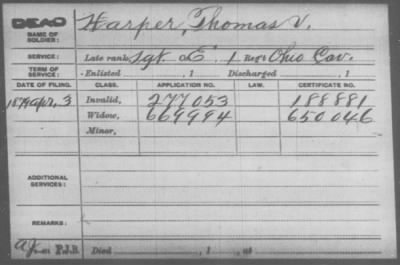 DEAD Harper, Thomas V.
NAME OF SOLDIER:
SERVICE: Late rank, Sgt. Co. E, 1 Reg't Ohio Cav.
TERM OF SERVICE: Enlisted , 1 Discharged , 1
DATE OF FILING. CLASS. APPLICATION NO. LAW. CERTIFICATE NO.
1879 Apr, 3 Invalid, 277053 188881
Widow, 669994 650046
Minor,
ADDITIONAL SERVICES:
REMARKS:
P.J.B. Died , 1 , at